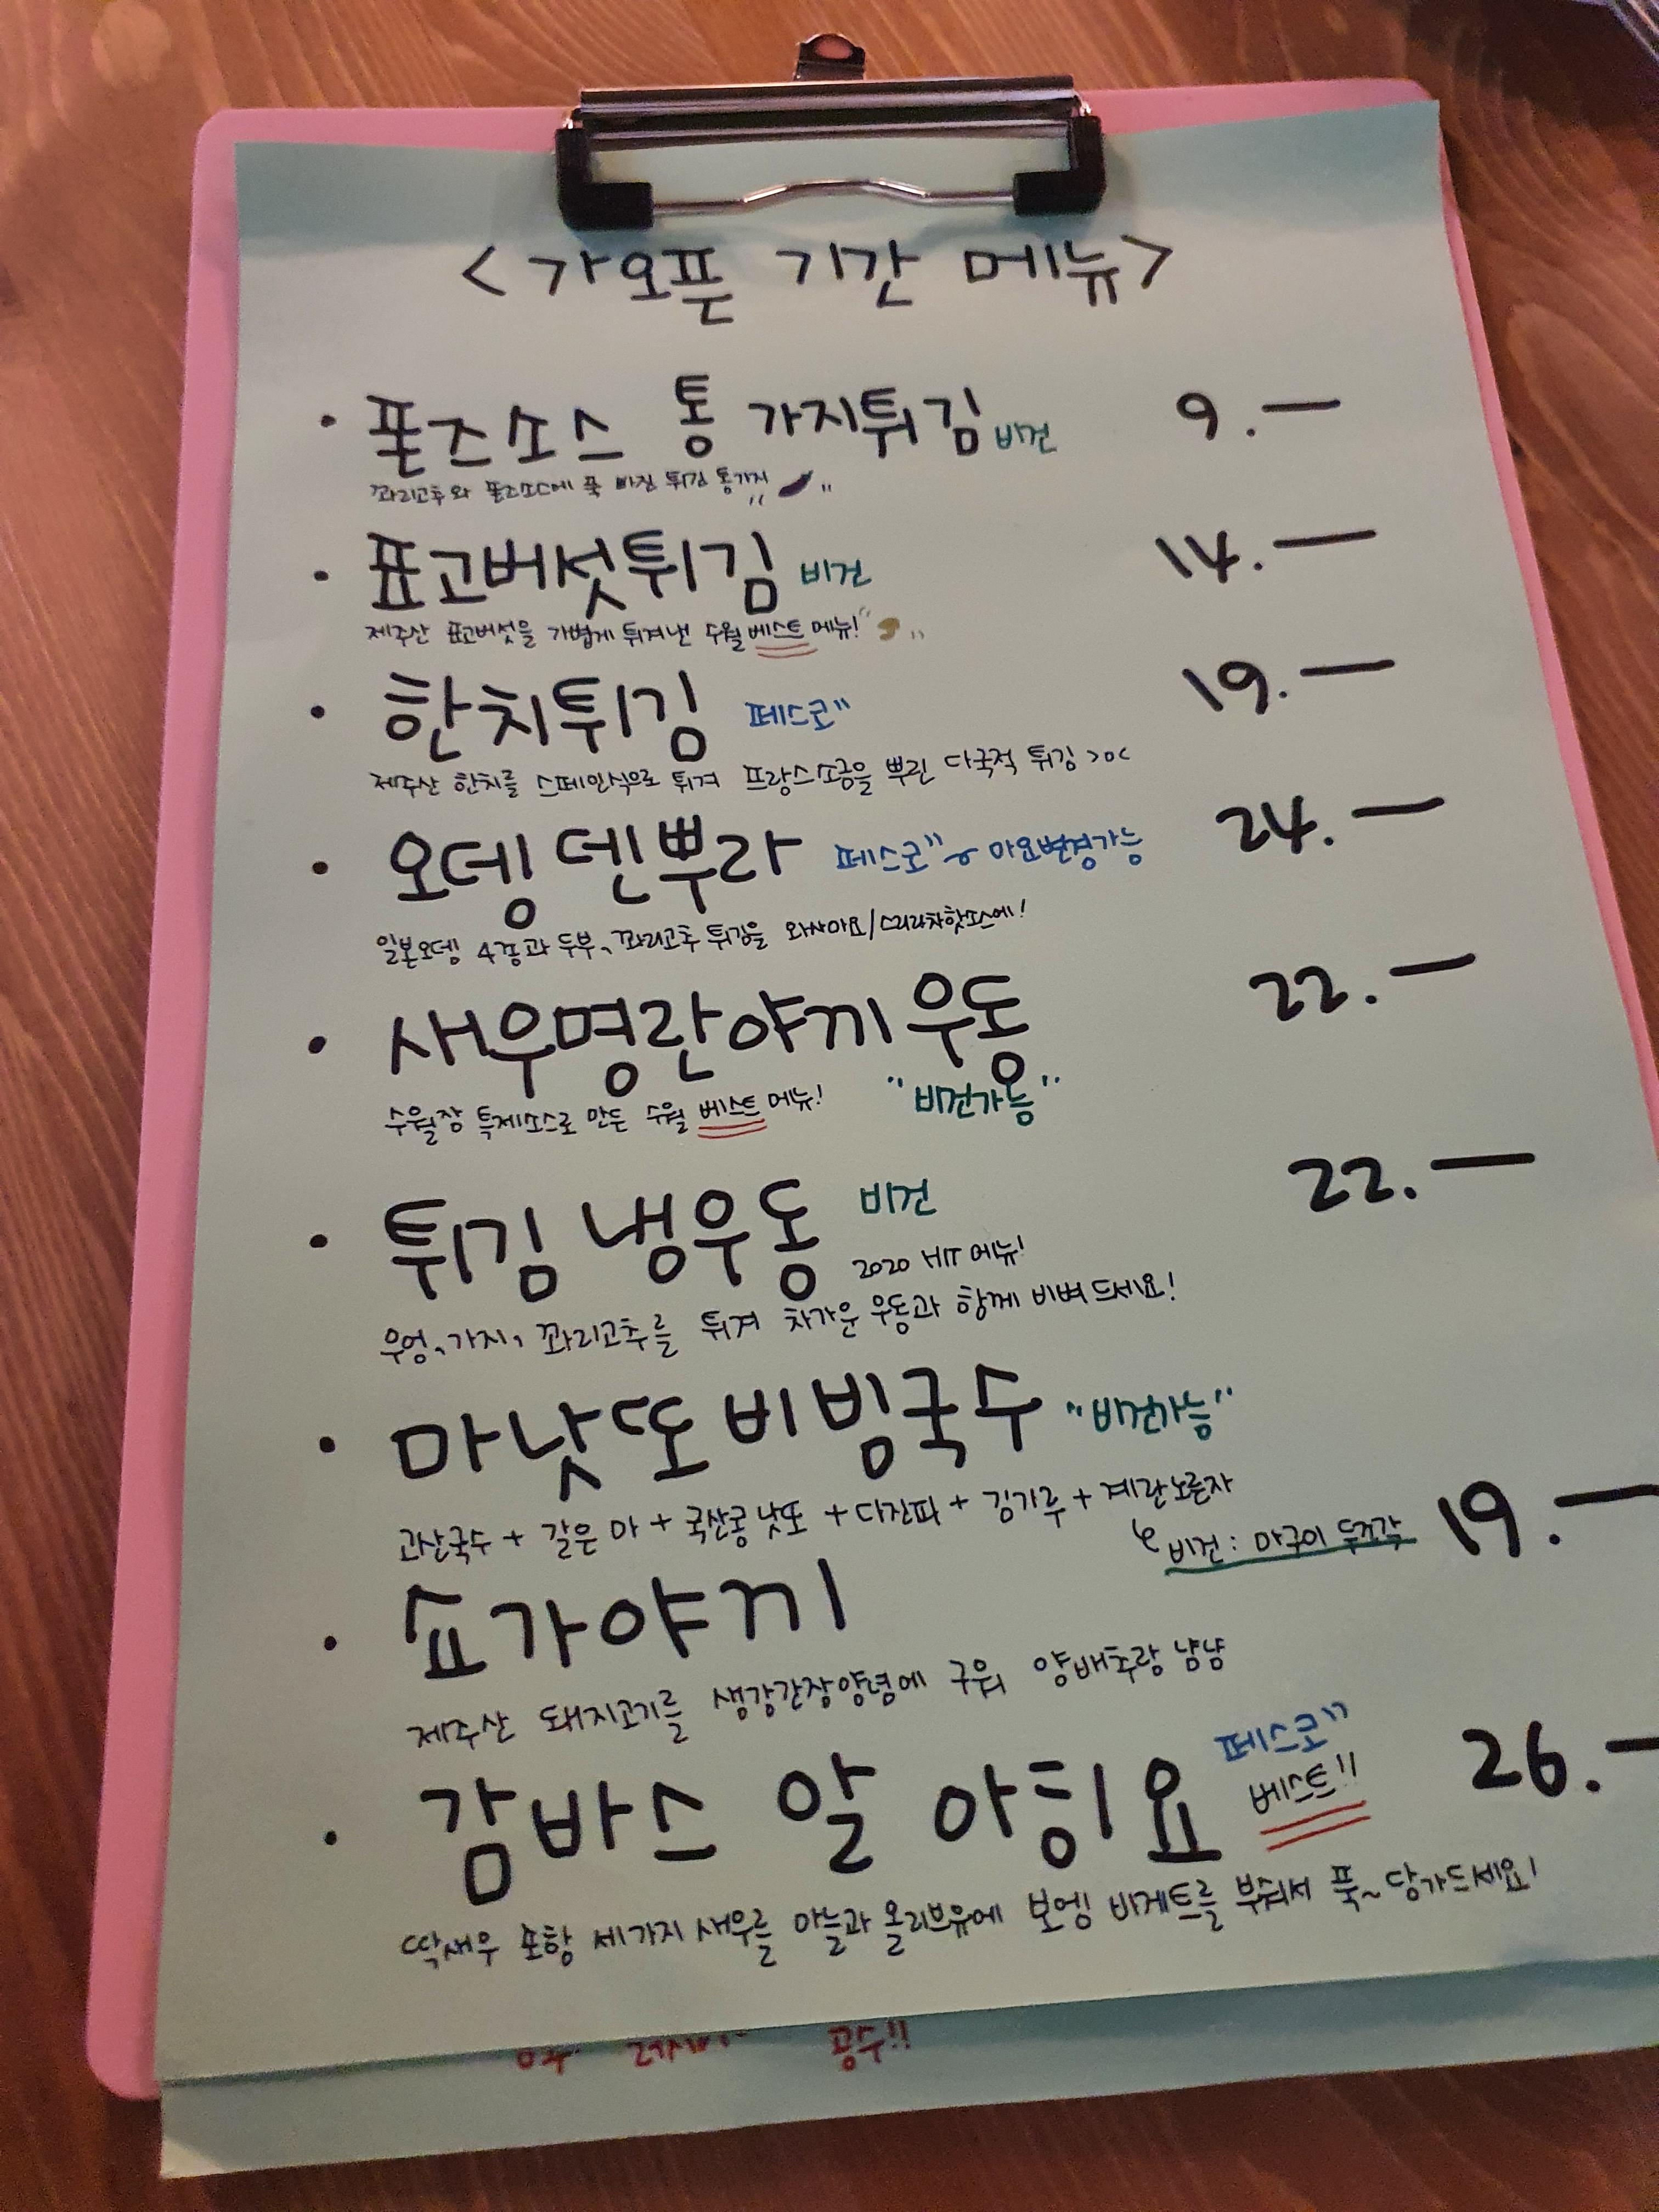 <가오픈 기간 메뉴>
· 폰즈소스 통 가지튀김 비건 9.—
꽈리고추와 폰즈소스에 푹 빠진 튀김 통가지"
· 표고버섯튀김 비건 14.—
제주산 표고버섯을 가볍게 튀겨낸 수월 베스트 메뉴!
· 한치튀김 페스코" 19.—
제주산 한치를 스페인식으로 튀겨 프랑스소금을 뿌린 다국적 튀김 >o<
· 오뎅 덴뿌라 페스코" 마요변경가능 24.—
일본오뎅 4종과 두부, 꽈리고추 튀김을 와사마요/스리라차핫소스에!
· 새우명란야끼우동 22.—
수월장 특제소스로 만든 수월 베스트 메뉴! "비건가능"
· 튀김 냉우동 비건 22.—
2020 HIT 메뉴!
우엉, 가지, 꽈리고추를 튀겨 차가운 우동과 함께 비벼드세요!
· 마낫또비빔국수 "비건가능"
곡산국수 + 갈은 마 + 국산콩낫또 + 다진파 + 김가루 + 계란노른자
비건 : 마구이 두조각 19.—
· 쇼가야끼
제주산 돼지고기를 생강간장양념에 구워 양배추랑 냠냠
· 감바스 알 아힁요 페스코" 26.—
베스트!!
딱새우 포함 세가지 새우를 마늘과 올리브유에 보엠 바게트를 부숴서 푹~ 담가드세요!
공수!!